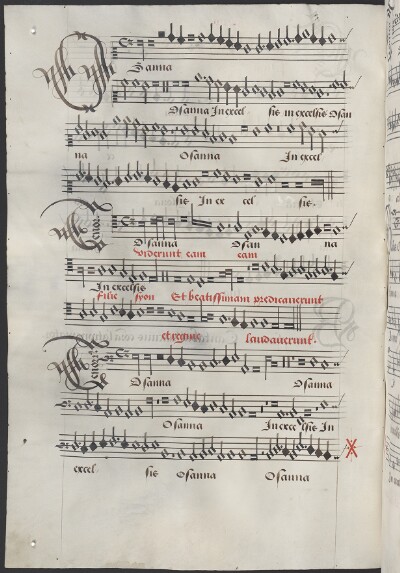 Osanna
Osanna In excel sis in excelsis Osan
na Osanna In excel
sis In ex cel sis.
Tenor
Osanna Osan na
viderunt eam eam
In excelsis
filie syon Et beatissimam predicauerunt
et regine laudauerunt.
Tenor
Osanna Osanna
Osanna In excelsis In
excel sis Osanna Osanna